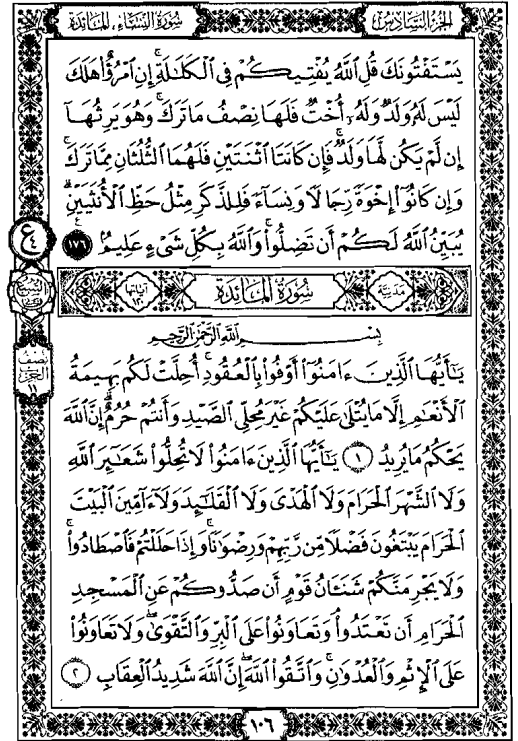 سُورَةُ النِّسَاءِ، المَائِدَة
الجُزْءُ السَّادِسُ
يَسْتَفْتُونَكَ قُلِ ٱللَّهُ يُفْتِيكُمْ فِى ٱلْكَلَـٰلَةِ ۚ إِنِ ٱمْرُؤٌا۟ هَلَكَ
لَيْسَ لَهُۥ وَلَدٌ وَلَهُۥٓ أُخْتٌ فَلَهَا نِصْفُ مَا تَرَكَ ۚ وَهُوَ يَرِثُهَآ
إِن لَّمْ يَكُن لَّهَا وَلَدٌ ۚ فَإِن كَانَتَا ٱثْنَتَيْنِ فَلَهُمَا ٱلثُّلُثَانِ مِمَّا تَرَكَ ۚ
وَإِن كَانُوٓا۟ إِخْوَةً رِّجَالًا وَنِسَآءً فَلِلذَّكَرِ مِثْلُ حَظِّ ٱلْأُنثَيَيْنِ ۗ
يُبَيِّنُ ٱللَّهُ لَكُمْ أَن تَضِلُّوا۟ ۗ وَٱللَّهُ بِكُلِّ شَىْءٍ عَلِيمٌۢ ١٧٦
مَدَنِيَّة
سُورَةُ المَائِدَة
بِسْمِ ٱللَّهِ ٱلرَّحْمَـٰنِ ٱلرَّحِيمِ
يَـٰٓأَيُّهَا ٱلَّذِينَ ءَامَنُوٓا۟ أَوْفُوا۟ بِٱلْعُقُودِ ۚ أُحِلَّتْ لَكُم بَهِيمَةُ
ٱلْأَنْعَـٰمِ إِلَّا مَا يُتْلَىٰ عَلَيْكُمْ غَيْرَ مُحِلِّى ٱلصَّيْدِ وَأَنتُمْ حُرُمٌ ۗ إِنَّ ٱللَّهَ
يَحْكُمُ مَا يُرِيدُ ١ يَـٰٓأَيُّهَا ٱلَّذِينَ ءَامَنُوا۟ لَا تُحِلُّوا۟ شَعَـٰٓئِرَ ٱللَّهِ
وَلَا ٱلشَّهْرَ ٱلْحَرَامَ وَلَا ٱلْهَدْىَ وَلَا ٱلْقَلَـٰٓئِدَ وَلَآ ءَآمِّينَ ٱلْبَيْتَ
ٱلْحَرَامَ يَبْتَغُونَ فَضْلًا مِّن رَّبِّهِمْ وَرِضْوَٰنًا ۚ وَإِذَا حَلَلْتُمْ فَٱصْطَادُوا۟ ۚ
وَلَا يَجْرِمَنَّكُمْ شَنَـَٔانُ قَوْمٍ أَن صَدُّوكُمْ عَنِ ٱلْمَسْجِدِ
ٱلْحَرَامِ أَن تَعْتَدُوا۟ ۘ وَتَعَاوَنُوا۟ عَلَى ٱلْبِرِّ وَٱلتَّقْوَىٰ ۖ وَلَا تَعَاوَنُوا۟
عَلَى ٱلْإِثْمِ وَٱلْعُدْوَٰنِ ۚ وَٱتَّقُوا۟ ٱللَّهَ ۖ إِنَّ ٱللَّهَ شَدِيدُ ٱلْعِقَابِ ٢
١٠٦
ع
٤
نصف
الحزب
١١